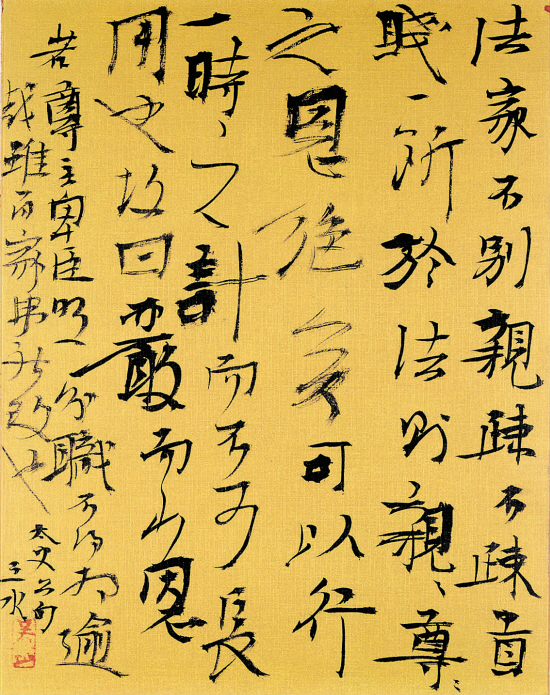 法家不別親疎不疎貴
賤一所於法則親〻尊〻
之恩絶矣可以行
一時之計而不可長
用也故曰嚴而少恩
若尊主卑臣明分職不得相踰
越雖百家弗能改也
太史公句